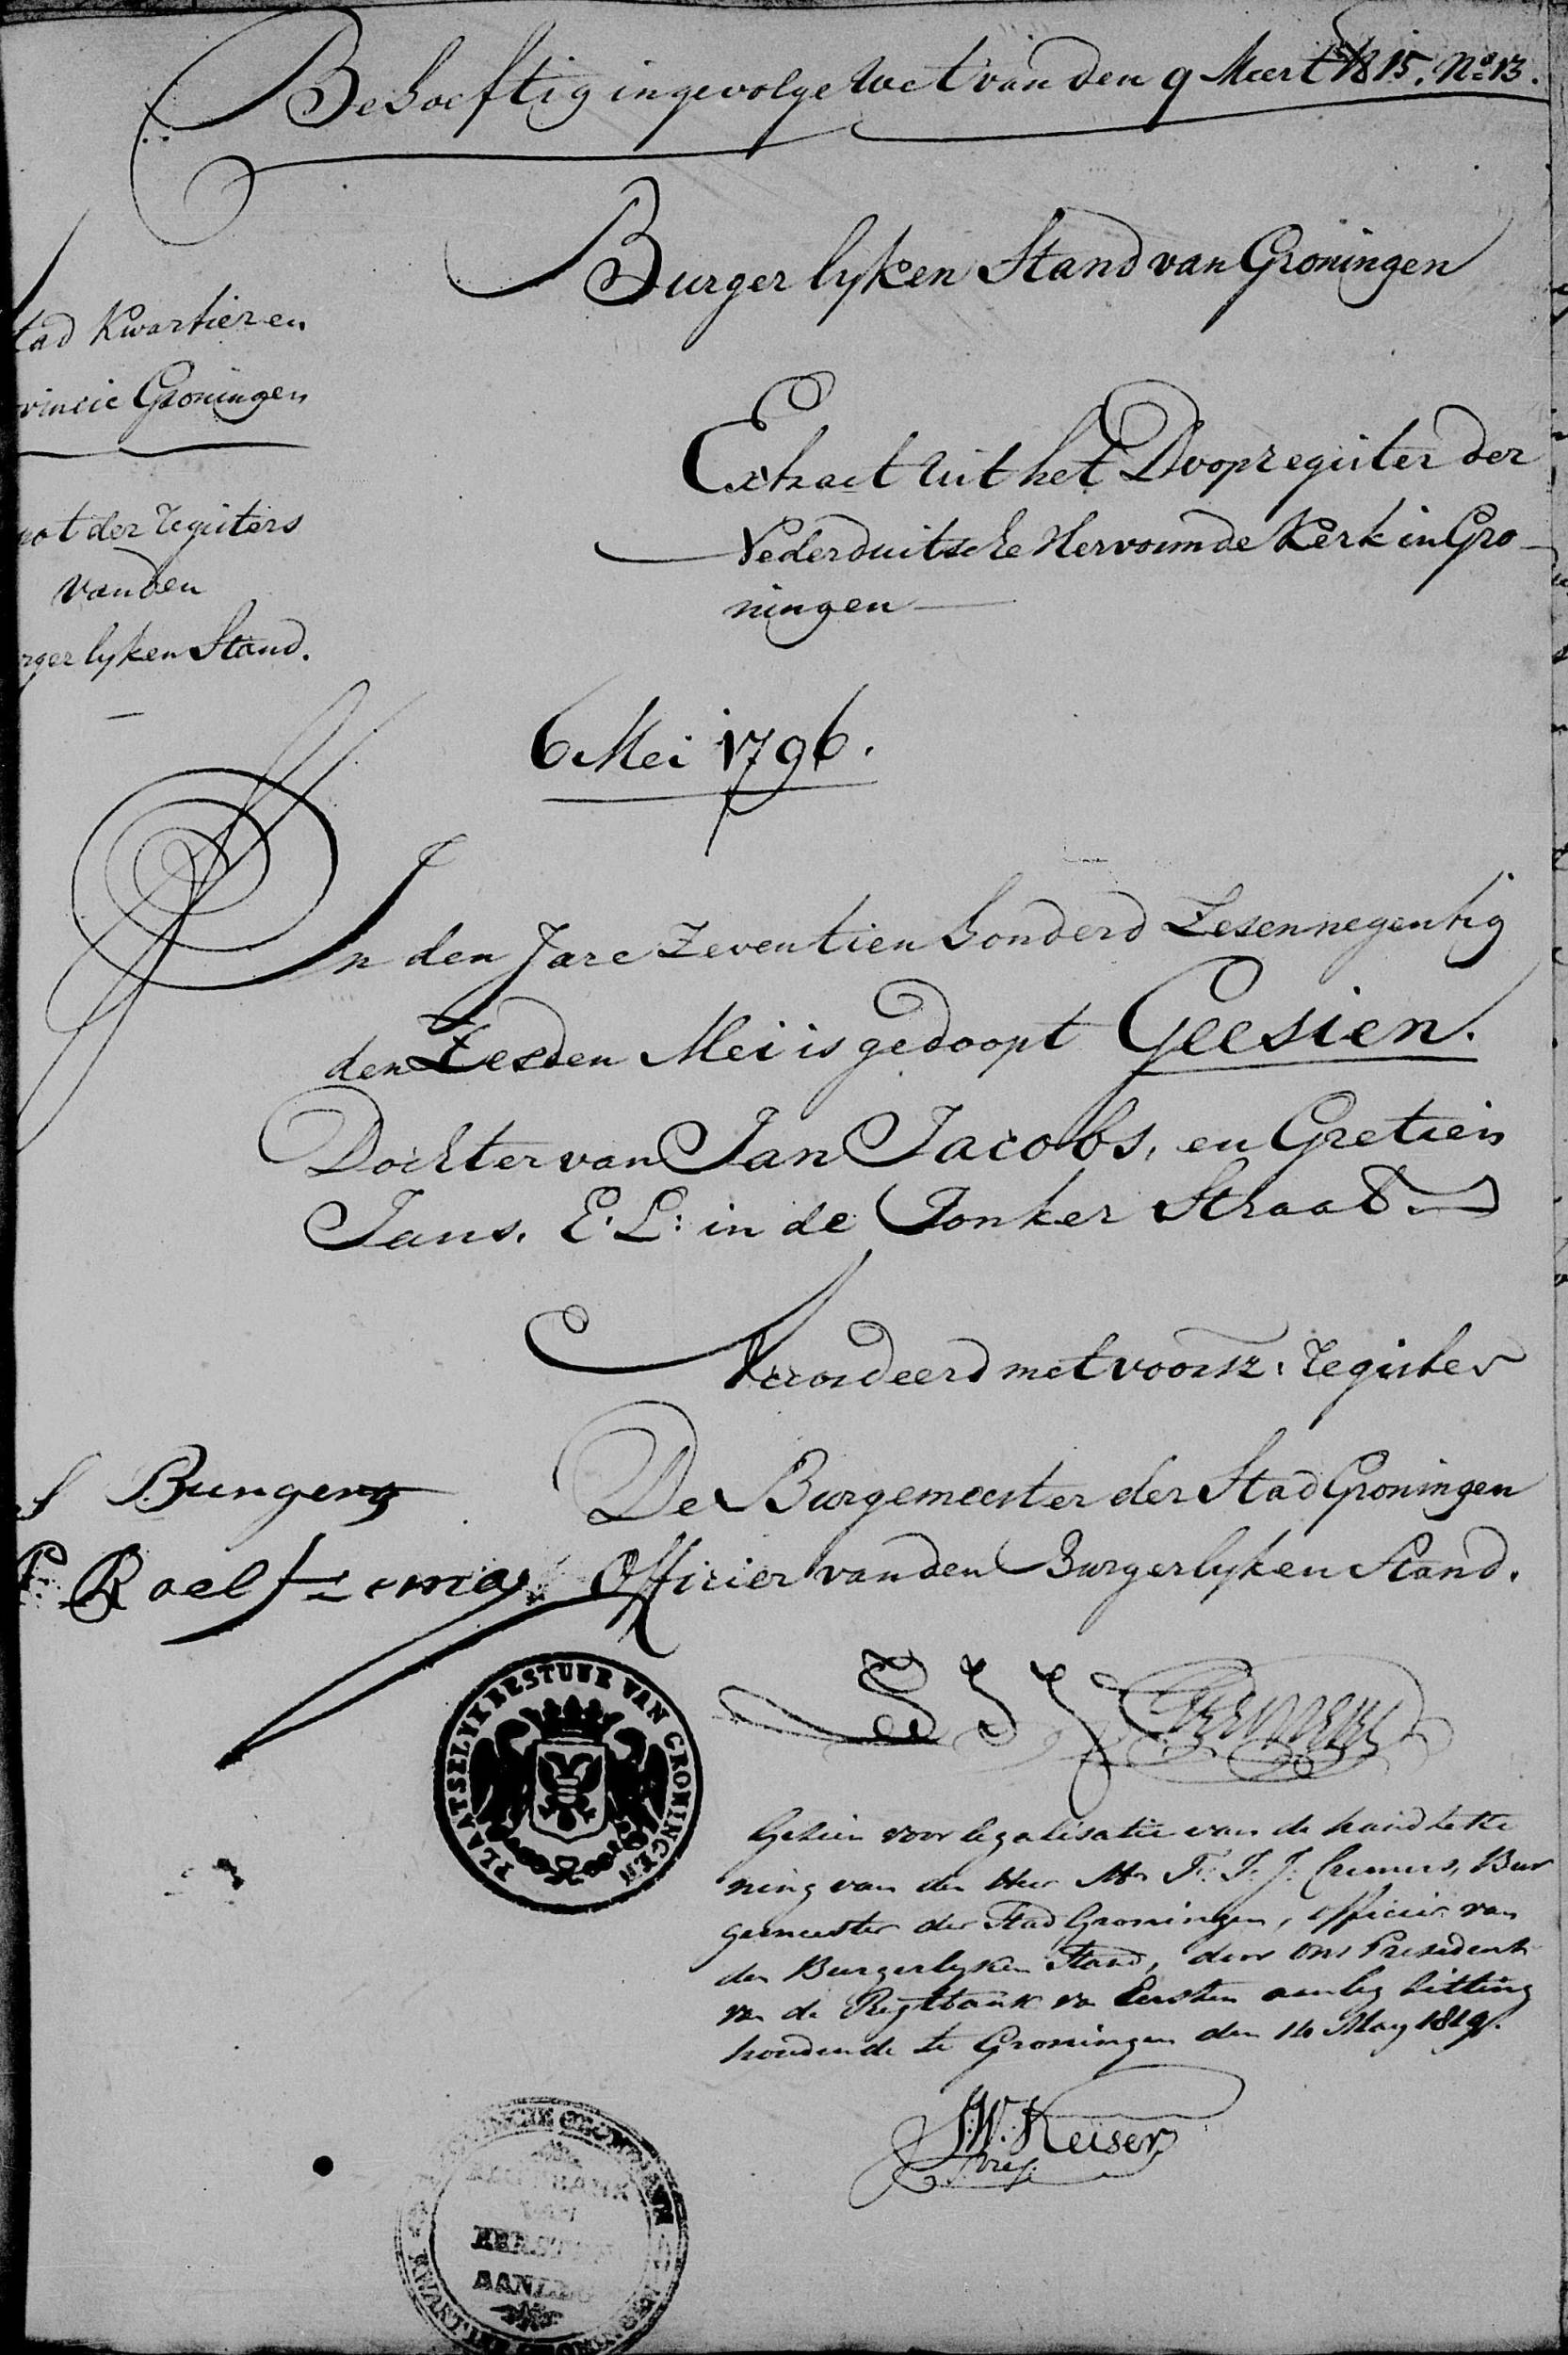 Behoeftig ingevolge Wet van den 9 Meert 1815. No. 13.
Burgerlyken Stand van Groningen
tad Kwartier en
vincie Groningen
Extract uit het Doopregister der
Nederduitsche Hervormde Kerk in Gro-
ningen
ot der registers
van den
rgerlyken Stand.
6 Mei 1796.
In den Jare Zeventien honderd Zesennegentig
den Zesden Mei is gedoopt Geesien.
Dochter van Jan Jacobs, en Gretien
Jans. E. L: in de Jonker Straat
Accordeerd met voorsz: register
De Burgemeester der Stad Groningen
Officier van den Burgerlyken Stand.
Bungeng
Roelfzema
PLAATSELYK BESTUUR VAN GRONINGEN
Gezien voor legalisatie van de handteke
ning van den Heer Mr. F. J. J. Cremers, Bur
gemeester der Stad Groningen, officier van
den Burgerlyken Stand, door ons President
van de Regtbank van Eersten aanleg zitting
houdende te Groningen den 14 May 1819.
J.W. Keiser
Pres.
REGTBANK
VAN
EERSTEN
AANLEG